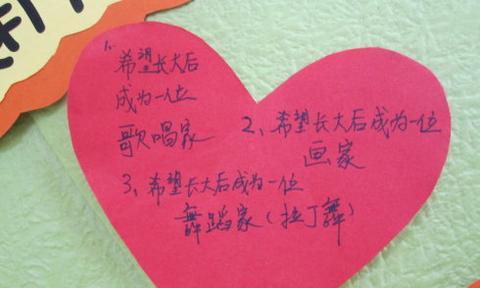 1、
希望长大后
成为一位
歌唱家
2、希望长大后成为一位
画家
3、希望长大后成为一位
舞蹈家(拉丁舞)